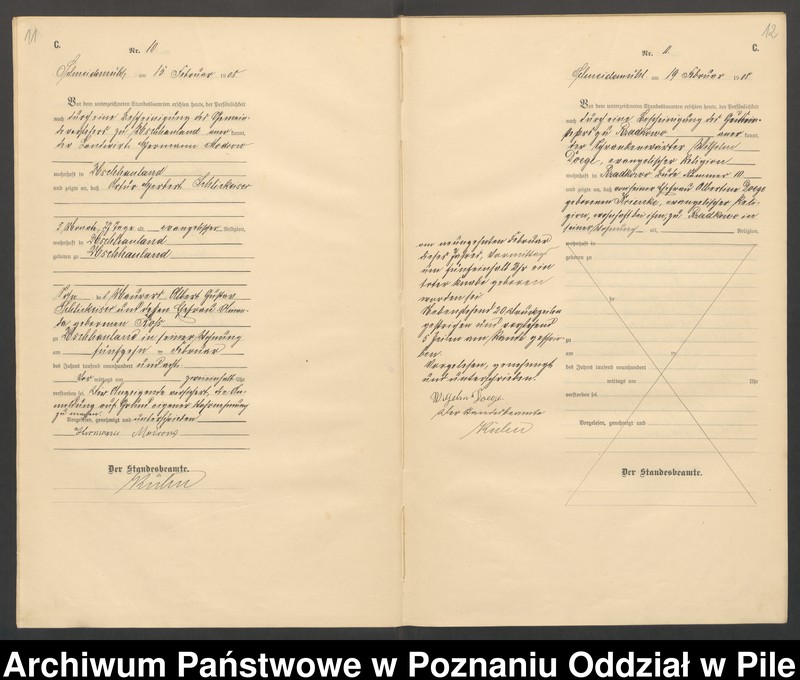 11
C.
Nr. 10
Schneidemühl am 15 Februar 1908
Vor dem unterzeichneten Standesbeamten erschien heute, der Persönlichkeit
nach durch eine Bescheinigung des Gemein-
devorstehers zu Uschhauland aner kannt,
der Landwirt Hermann
wohnhaft in Uschhauland
und zeigte an, daß Artur Herbert Schlickeiser
5 Monate, 29 Tage alt, evangelischer Religion,
wohnhaft in Uschhauland
geboren zu Uschhauland
Sohn des Maurers Albert Gustav
Schlickeiser und dessen Ehefrau
geborenen Roß
zu Uschhauland in seiner Wohnung
am fünfzehn ten Februar
des Jahres tausend neunhundert und acht
Vor mittags um zweieinhalb Uhr
verstorben sei. Der Anzeigende versichert, die An-
meldung auf Grund eigener Wissenschaft
zu machen.
Vorgelesen, genehmigt und unterschrieben
Hermann
Der Standesbeamte.
Kühn
12
C.
Nr. 11
Schneidemühl am 19 Februar 1908
Vor dem unterzeichneten Standesbeamten erschien heute, der Persönlichkeit
nach durch eine Bescheinigung des Gutsvor-
stehers zu Radkowo aner kannt,
der Schrankenwärter Wilhelm
Doege, evangelischer Religion
wohnhaft in Radkowo Bude Nummer 111
und zeigte an, daß von seiner Ehefrau Albertine Doege
geborenen Krienke, evangelischer Reli-
gion, wohnhaft bei ihm, zu Radkowo in
seiner Wohnung alt, Religion,
wohnhaft in
geboren zu
am neunzehnten Februar
dieses Jahres, Vormittags
um fünfeinhalb Uhr ein
toter Knabe geboren
worden sei
Nebenstehend 20 Druckzeilen
gestrichen und vorstehend
5 Zeilen am Rande geschrie-
ben.
Vorgelesen, genehmigt
und unterschrieben.
Wilhelm Doege
Der Standesbeamte
Kühn
der
zu
am ten
des Jahres tausend neunhundert
mittags um Uhr
verstorben sei.
Vorgelesen, genehmigt und
Der Standesbeamte.
Archiwum Państwowe w Poznaniu Oddział w Pile